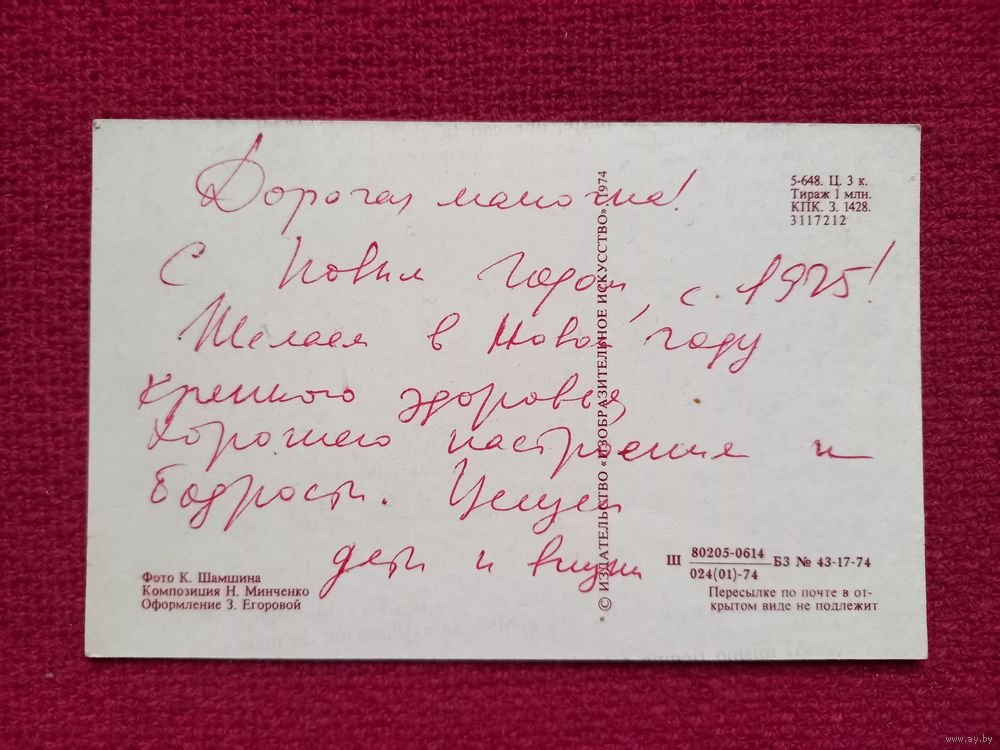 Дорогая мамочка!
С Новым годом, с 1975!
Желаем в Новом году
крепкого здоровья,
хорошего настроения и
бодрости. Целуем
дети и внуки
5-648. Ц. 3 к.
Тираж 1 млн.
КПК. З. 1428.
3117212
© ИЗДАТЕЛЬСТВО «ИЗОБРАЗИТЕЛЬНОЕ ИСКУССТВО». 1974
Фото К. Шамшина
Композиция Н. Минченко
Оформление З. Егоровой
Ш 80205-0614 БЗ № 43-17-74
024(01)-74
Пересылке по почте в от-
крытом виде не подлежит
www.ay.by